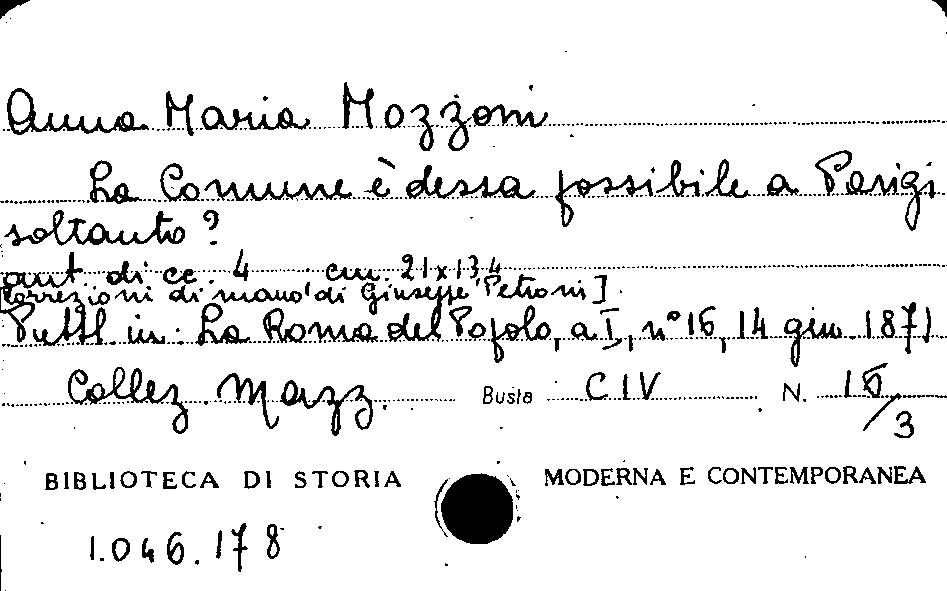 Anna Maria Mozzoni
La Comune è dessa possibile a Parigi
soltanto?
aut. di cc. 4 cm. 21x13,4
[Correzioni di mano di Giuseppe Petroni].
Pubbl. in: La Roma del Popolo, a I, n° 16, 14 giu. 1871
Collez. Mazz. Busta CIV N. 16/3
BIBLIOTECA DI STORIA MODERNA E CONTEMPORANEA
1.046.178